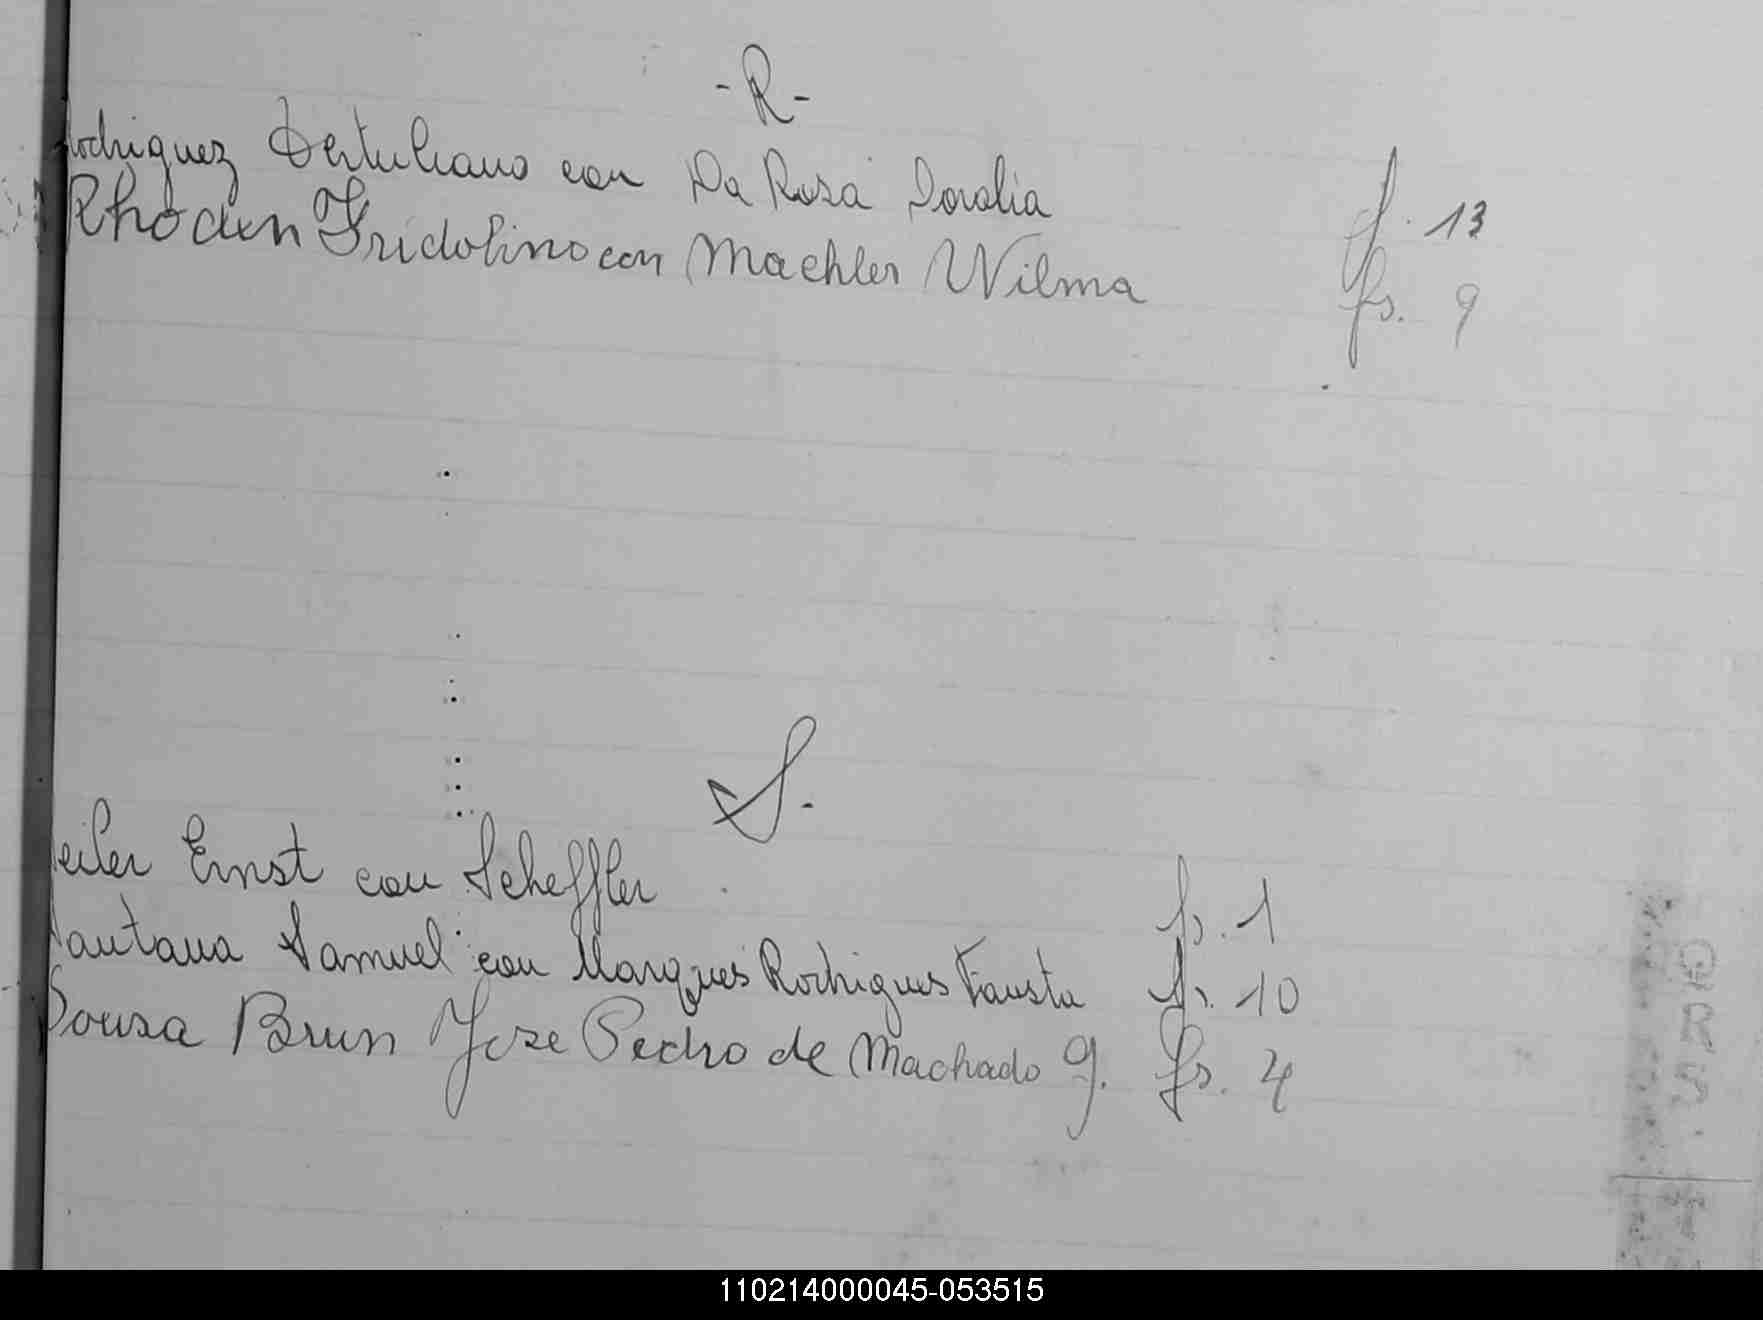 -R-
Rodriguez Tertuliano con Da Rosa Doralia f. 13
Rhoden Fridolino con Maehler Wilma fs. 9
S.
Seiler Ernst con Scheffler fs. 1
Santana Samuel con Marques Rodrigues Fausta fs. 10
Sousa Brun Jose Pedro de Machado G. fs. 4
110214000045-053515